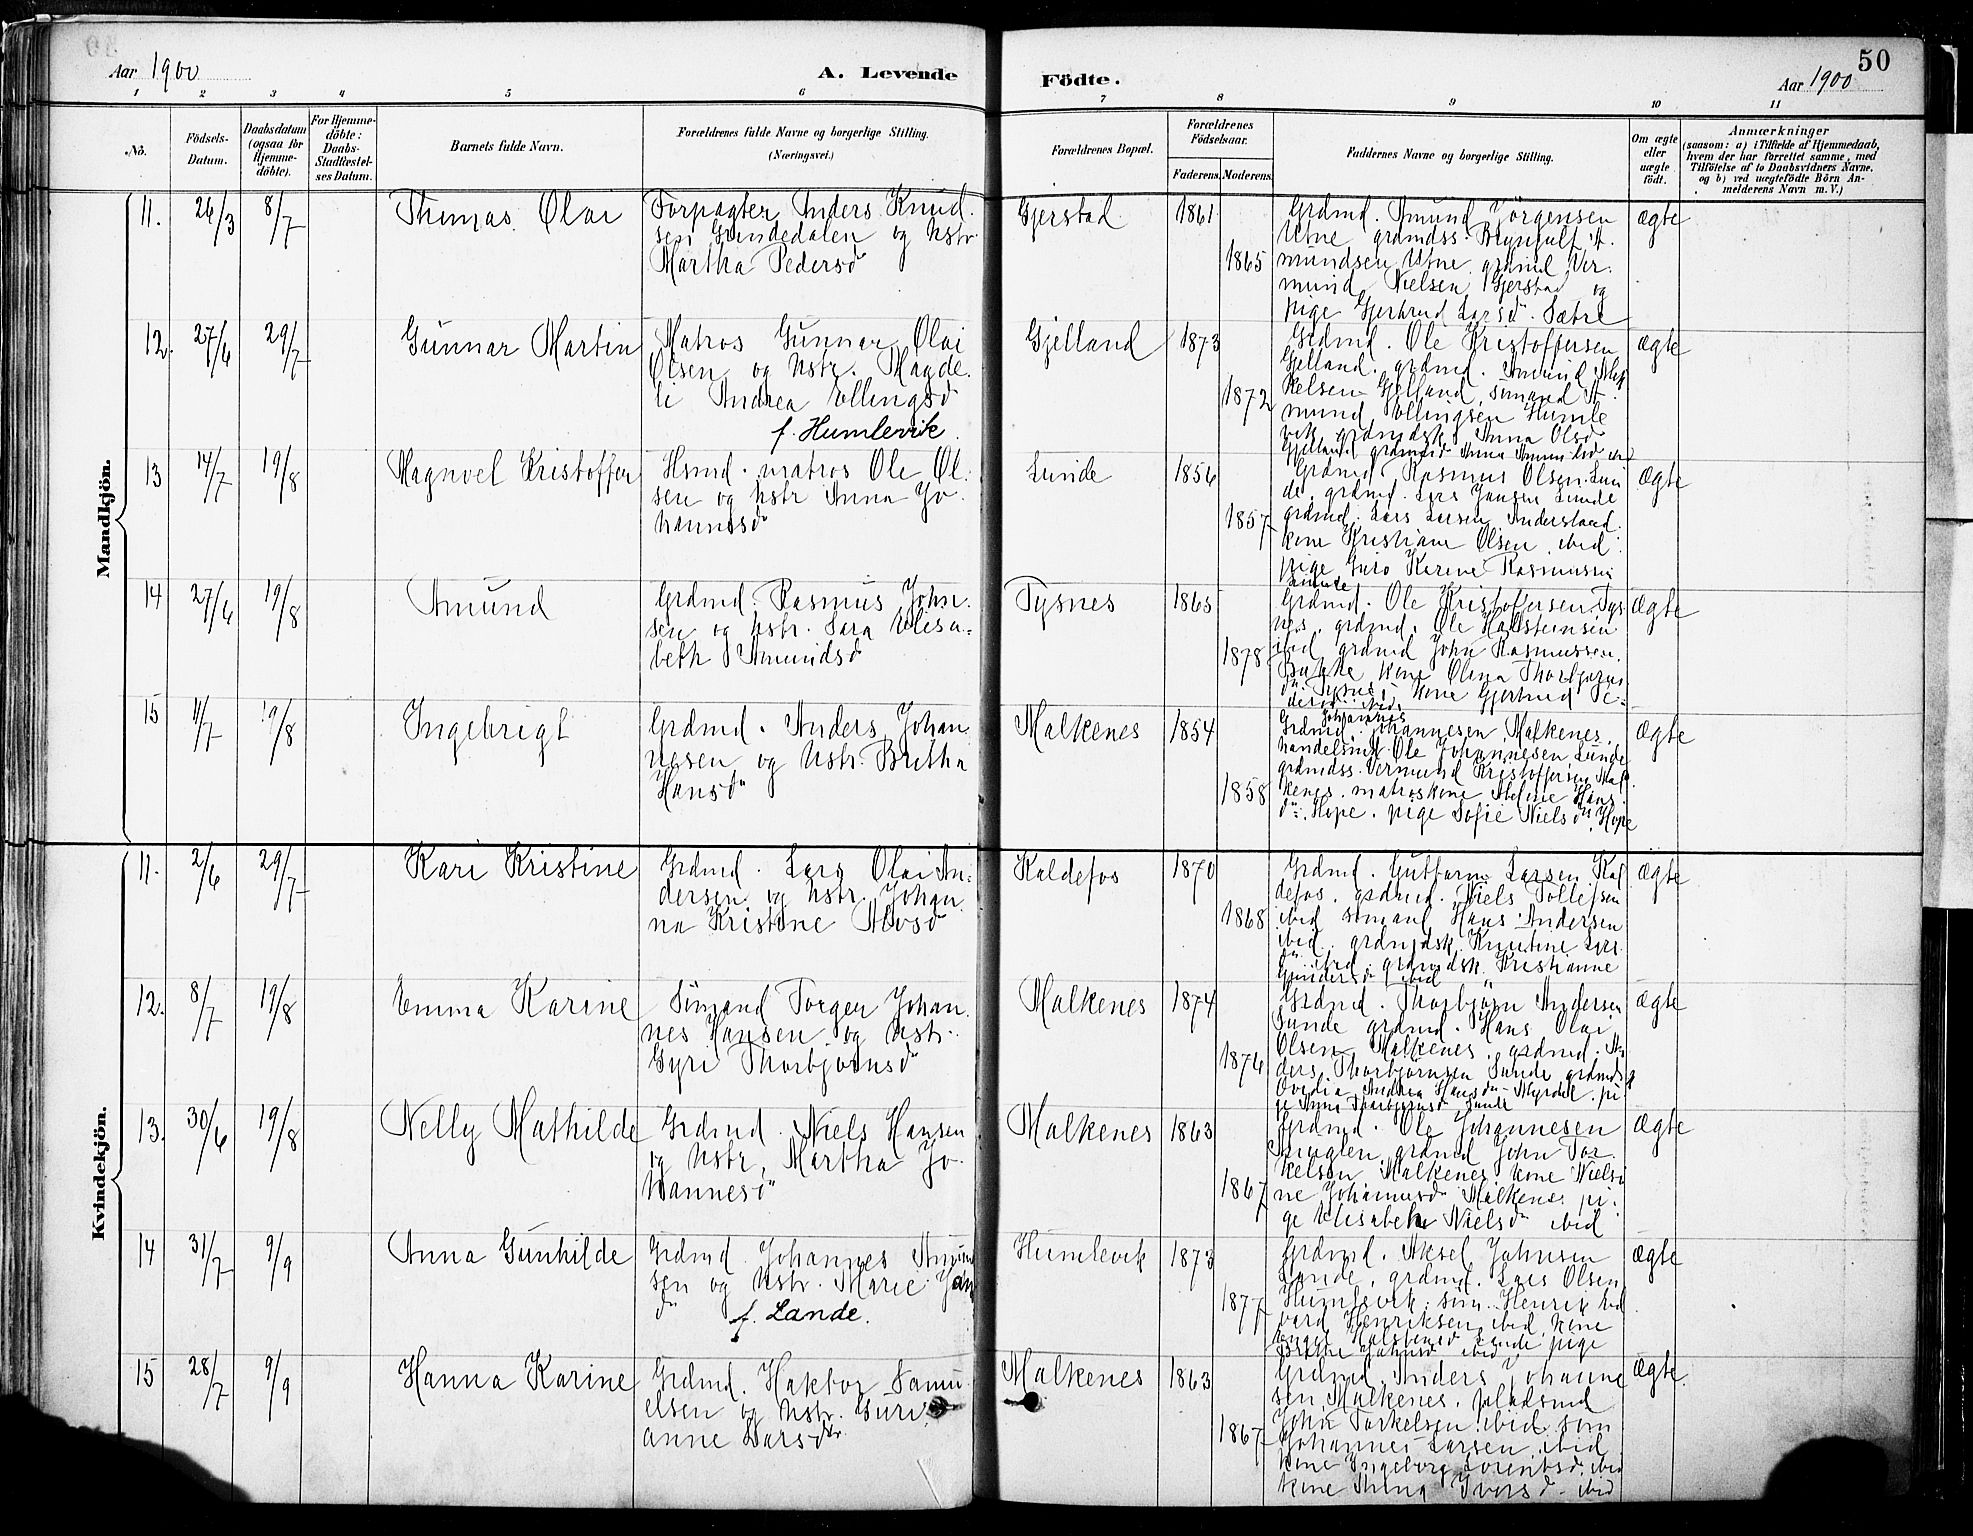 Aar 1900
A. Levende
Födte.
50
Aar 1900
1 2 3 4 5 6 7 8 9 10 11
No.
Födsels-
Datum.
Daabsdatum
(ogsaa for
Hjemme-
döbte).
For Hjemme-
döbte:
Daabs-
Stadfæstel-
ses Datum.
Barnets fulde Navn.
Forældrenes fulde Navne og borgerlige Stilling.
(Næringsvei.)
Forældrenes Bopæl.
Forældrenes
Födselsaar.
Faderens. Moderens.
Faddernes Navne og borgerlige Stilling.
Om ægte
eller
uægte
födt.
Anmærkninger
(saasom: a) i Tilfælde af Hjemmedaab,
hvem der har forrettet samme, med
Tilföielse af to Daabsvidners Navne.
og b) ved uægtefödte Börn An-
melderens Navn m. V.)
Mandkjön.
11. 26/3 8/7 Thomas Olai
Forpagter Anders Knud-
sen Grindedalen og Hstr
Martha Pedersd
Gjerstad 1861 1865
Grdmd. Amund Jörgensen
Utne grdmdss. Brynjulf A-
mundsen Utne, grdmd Ver-
mund Nielsen Gjerstad og
pige Gjertrud Larsd. Sætre
ægte
12. 27/6 29/7 Gunnar Martin
Matros Gunnar Olai
Olsen og Hstr. Magde-
li Andrea Ellingsd
f. Humlevik
Gjelland 1873 1872
Grdmd. Ole Kristoffersen
Gjelland, grdmd. Amund
kelsen Gjelland, sömand A-
mund Ellingsen Humle
vik, grdmdsk. Anna Olsd
Gjelland
ægte
13 14/7 19/8 Magnvel Kristoffer
Hsmd. matros Ole Ol-
sen og Hstr Anna Jo-
hannesd
Lunde 1856 1857
Grdmd Rasmus Olsen Lun
de, grdmd. Lars Jansen Lunde
grdmd. Lars Larsen Anderland
kone Kristiane Olsen, ibid
pige Guro Karine Rasmussen
Lunde
ægte
14 27/6 19/8 Amund
Grdmd. Rasmus John-
sen og Hstr. Sara Elisa-
beth Amundsd
Tysnes 1865 1878
Grdmd. Ole Kristoffersen Tys
nes, grdmd. Ole Hallsteinsen
ibid grdmd John Rasmussen
Bakke kone Olina Thorbjörns
d. Tysnes, kone Gjertrud Pe-
dersd ibid
ægte
15 11/7 19/8 Ingebrigt
Grdmd. Anders Johan
nesen og Hstr. Britha
Hansd
Malkenes 1854 1858
Johannes
Grdmd. Johannesen Malkenes,
handelsmd. Ole Johannesen Lunde
grdmdss. Vermund Kristoffersen Mal
kenes. matroskone Hans-
d. Hope. pige Sofie Nielsd. Hope
ægte
Kvindekjön.
11. 2/6 29/7 Kari Kristine
Grdmd. Lars Olai An-
dersen og Hstr. Johan
na Kristine Alvsd
Kaldefos 1870 1868
Grdmd. Guttorm Larsen Kal
defos, grdmd. Niels Tollefsen
ibid sömand Hans Andersen
ibid. grdmdsk. Knutine Lars
d. ibid. grdmdsk. Kristianne
Gundersd ibid
ægte
12. 8/7 19/8 Emma Karine
Sömand Torger Johan
nes Hansen og Hstr.
Gyri Thorbjörnsd
Malkenes 1874 1876
Grdmd. Thorbjörn Andersen
Lunde grdmd. Hans Olai
Olsen Malkenes. grdmd. An
ders Thorbjörnsen Lunde grdmdsk
Ovedia Andrea Hansd. Myrdal. pi
ge Anna Thorbjörnsd Lunde
ægte
13. 30/6 19/8 Nelly Mathilde
Grdmd. Niels Hansen
og Hstr. Martha Jo-
hannesd
Malkenes 1863 1867
Grdmd. Ole Johannesen
Singlen, grdmd John Tor-
kelsen Malkenes. kone Nielsi
ne Johannesd Malkenes. pi-
ge Elisabeth Nielsd ibid
ægte
14 31/7 9/9 Anna Gunhilde
Grdmd. Johannes Amund
sen og Hstr. Marie Johns
d
f. Lande.
Humlevik 1873 1877
Grdmd. Aksel Johnsen
Lande, grdmd. Lars Olsen
Humlevik. söm. Henrik Ed
vard Henriksen ibid, kone
Inger Halstensd Lunde pige
Brithe Johnsd ibid
ægte
15 28/7 9/9 Hanna Karine
Grdmd. Haktor Samu-
elsen og Hstr. Guri-
anne Larsdtr
Malkenes 1863 1867
Grdmd. Anders Johanne
sen Malkenes, pladsmd
John Torkelsen ibid. söm
Johannes Larsen ibid
kone Ingeborg Lorentsd. ibid
kone Anna Iversd. ibid
ægte.